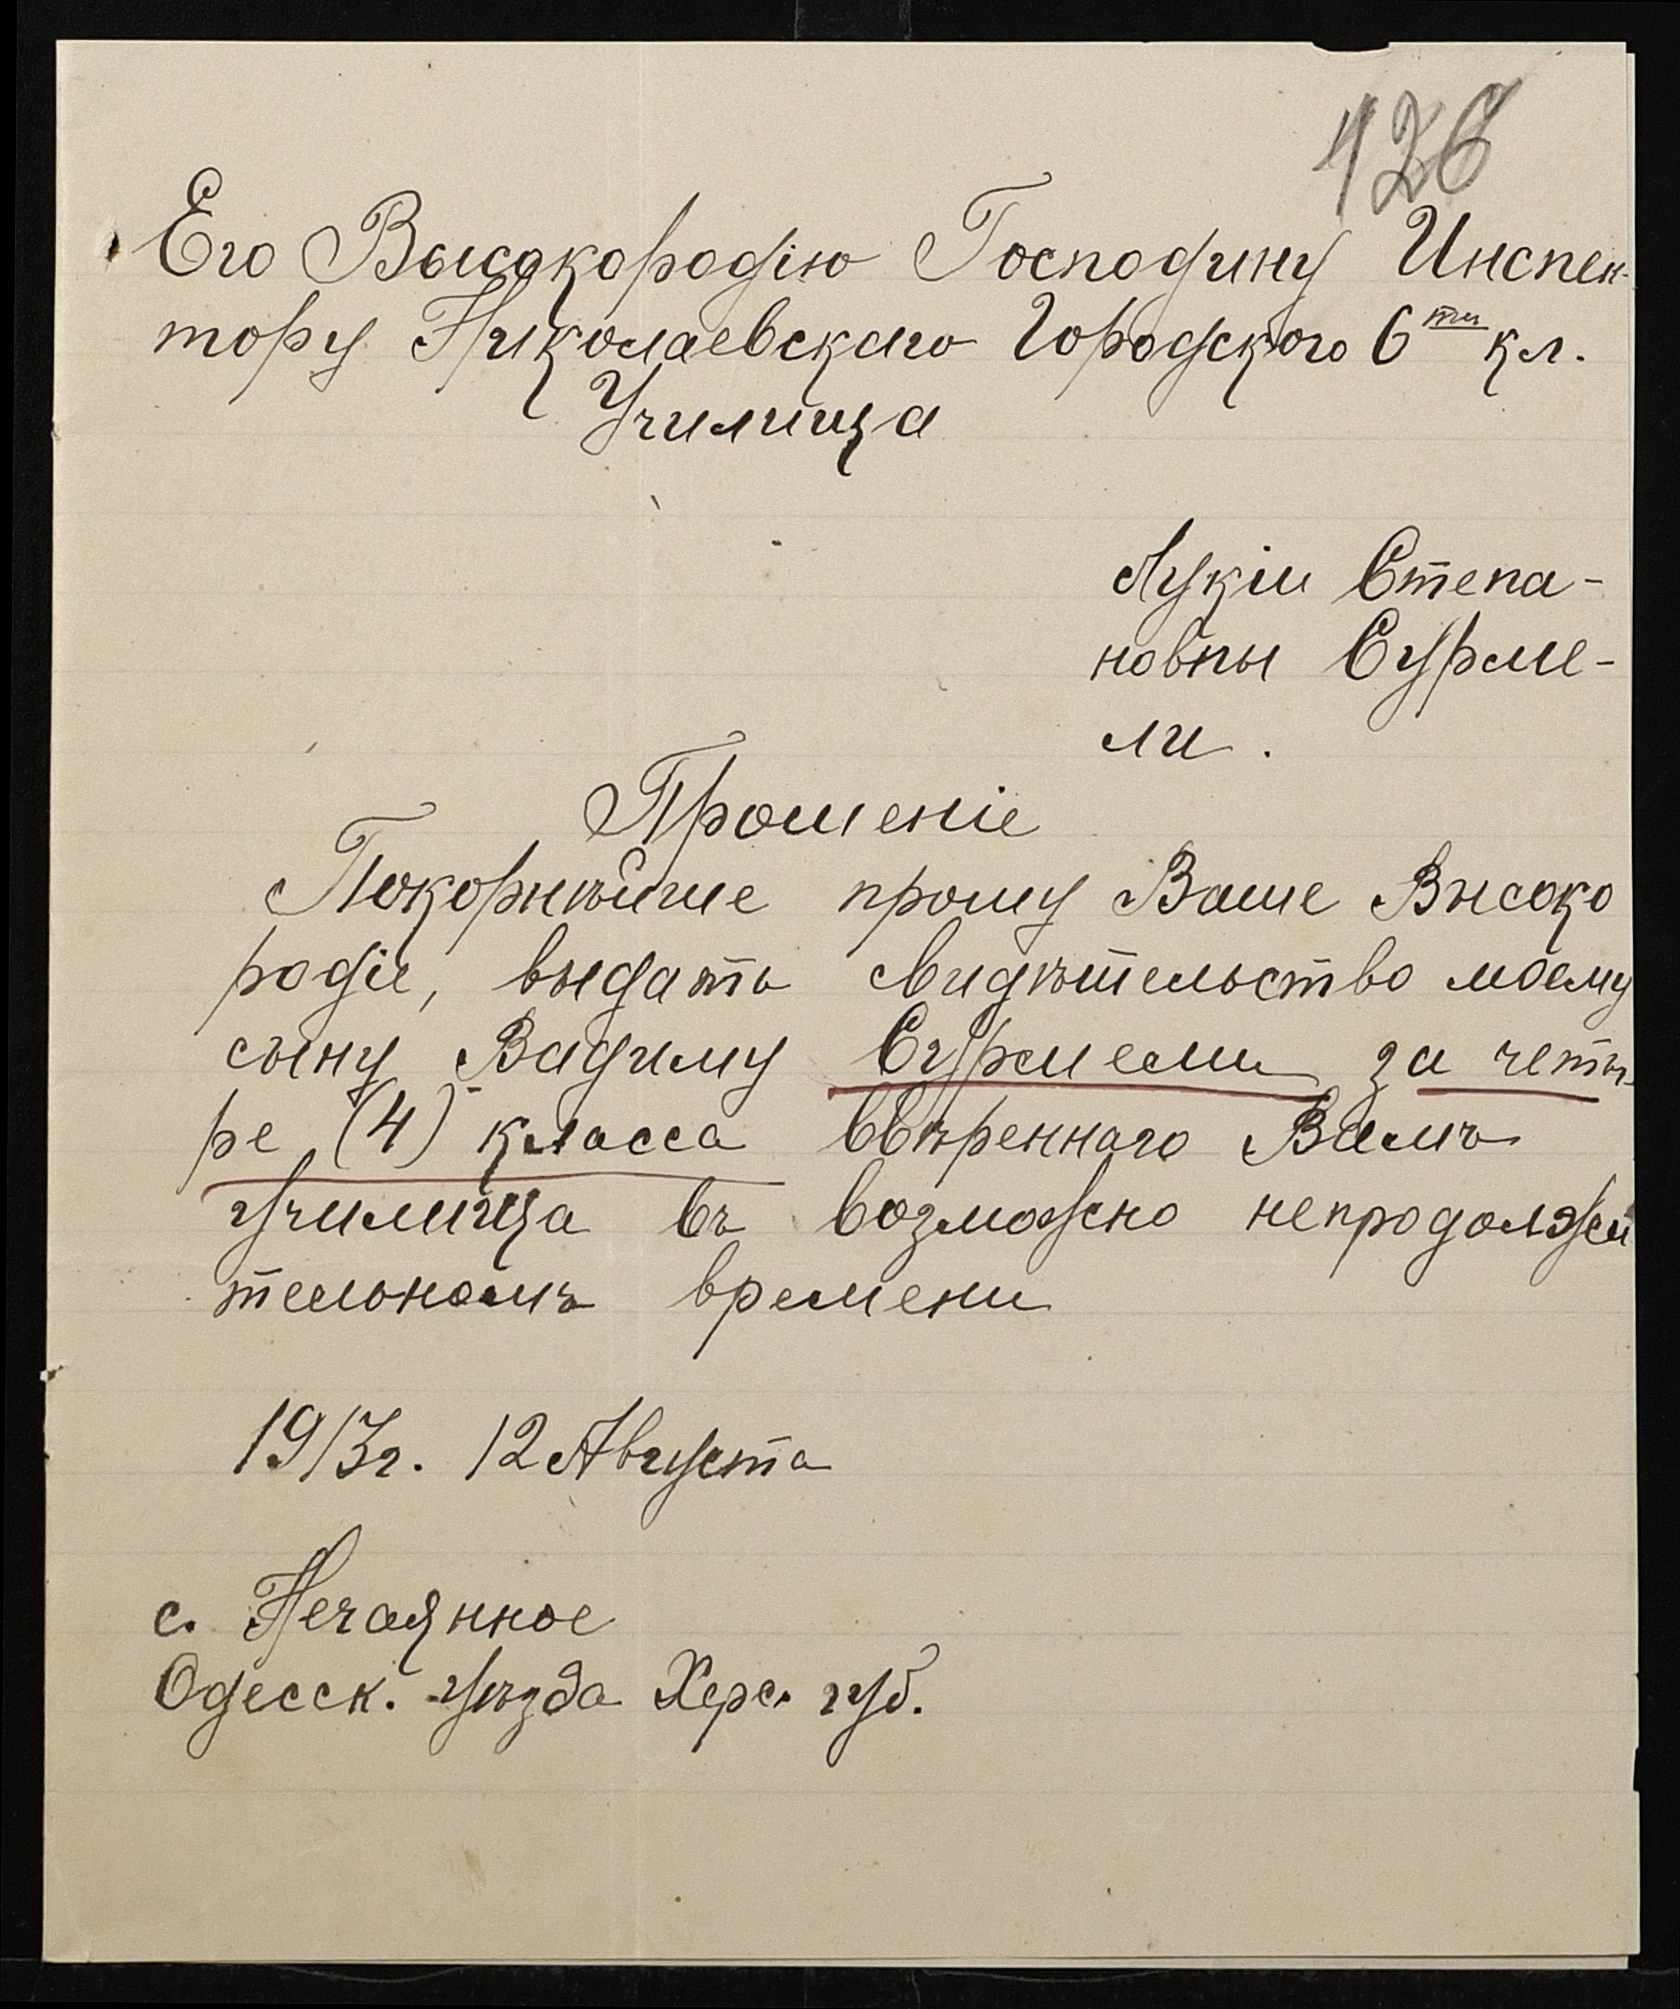 126
Его Высокородію Господину Инспек-
тору Николаевскаго Городского 6ти кл.
Училища
Лукіи Степа-
новны Сурме-
ли.
Прошеніе
Покорнѣйше прошу Ваше Высоко
родіе, выдать свидѣтельство моему
сыну Вадиму Сурмели за четы-
ре (4) класса ввѣреннаго Вамъ
училища въ возможно непродолжи
тельномъ времени
1913г. 12 Августа
с. Нечаянное
Одесск. уѣзда Херс. губ.